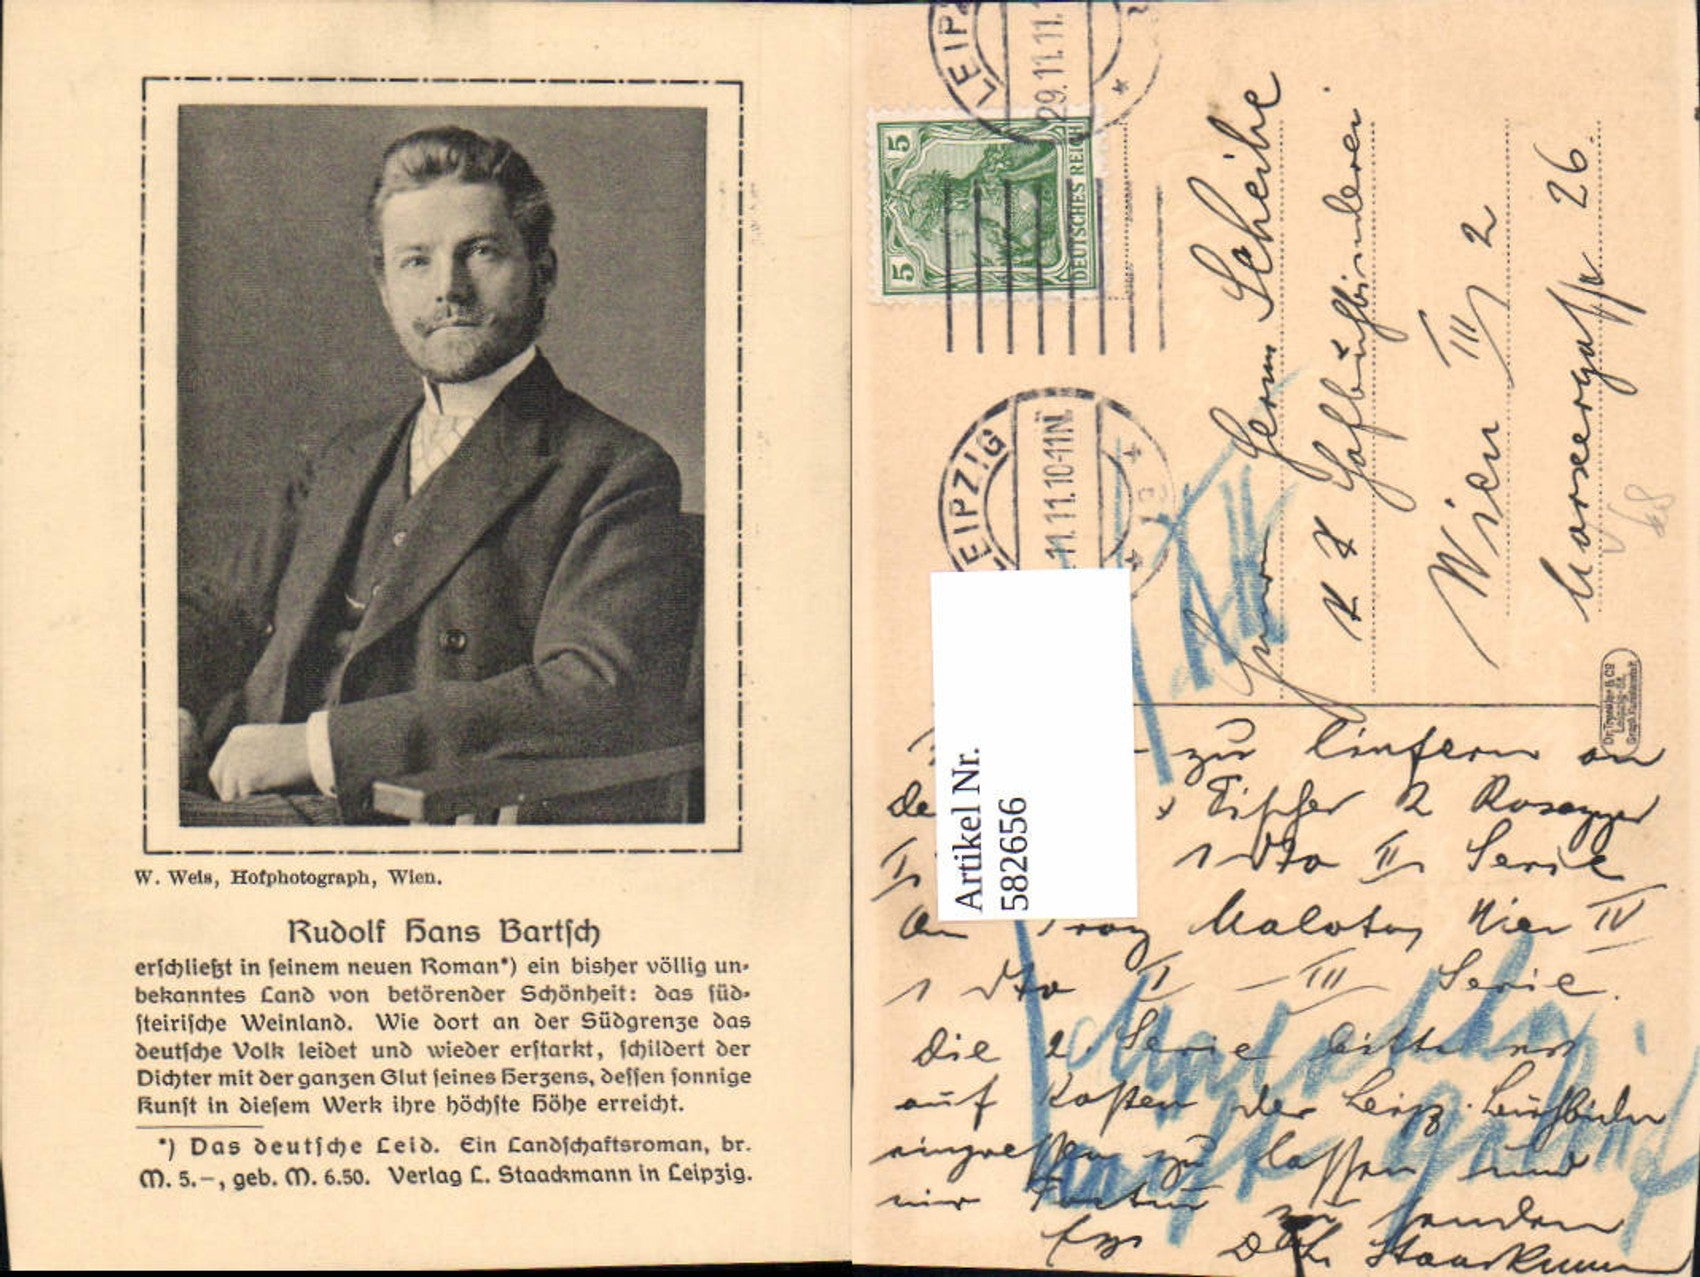 W. Weis, Hofphotograph, Wien.
Rudolf Hans Bartsch
erschließt in seinem neuen Roman*) ein bisher völlig un-
bekanntes Land von betörender Schönheit: das süd-
steirische Weinland. Wie dort an der Südgrenze das
deutsche Volk leidet und wieder erstarkt, schildert der
Dichter mit der ganzen Glut seines Herzens, dessen sonnige
Kunst in diesem Werk ihre höchste Höhe erreicht.
*) Das deutsche Leid. Ein Landschaftsroman, br.
M. 5.–, geb. M. 6.50. Verlag L. Staackmann in Leipzig.
LEIPZ
29.11.11.
5
5
DEUTSCHES REICH
LEIPZIG
11.11.10-11N.
Artikel Nr.
5826656
Herm Scheibe
K K Hofbuchbinderei
Wien III 2
Marxergasse 26
zu liefern an
Fischer 2 Rosegger
1 dto II Serie
Malota, Wien IV
1 dto II – III Serie.
Die 2. Serie bitte
auf Kosten der Leipz.
zu lassen und
zu senden
Staackmann